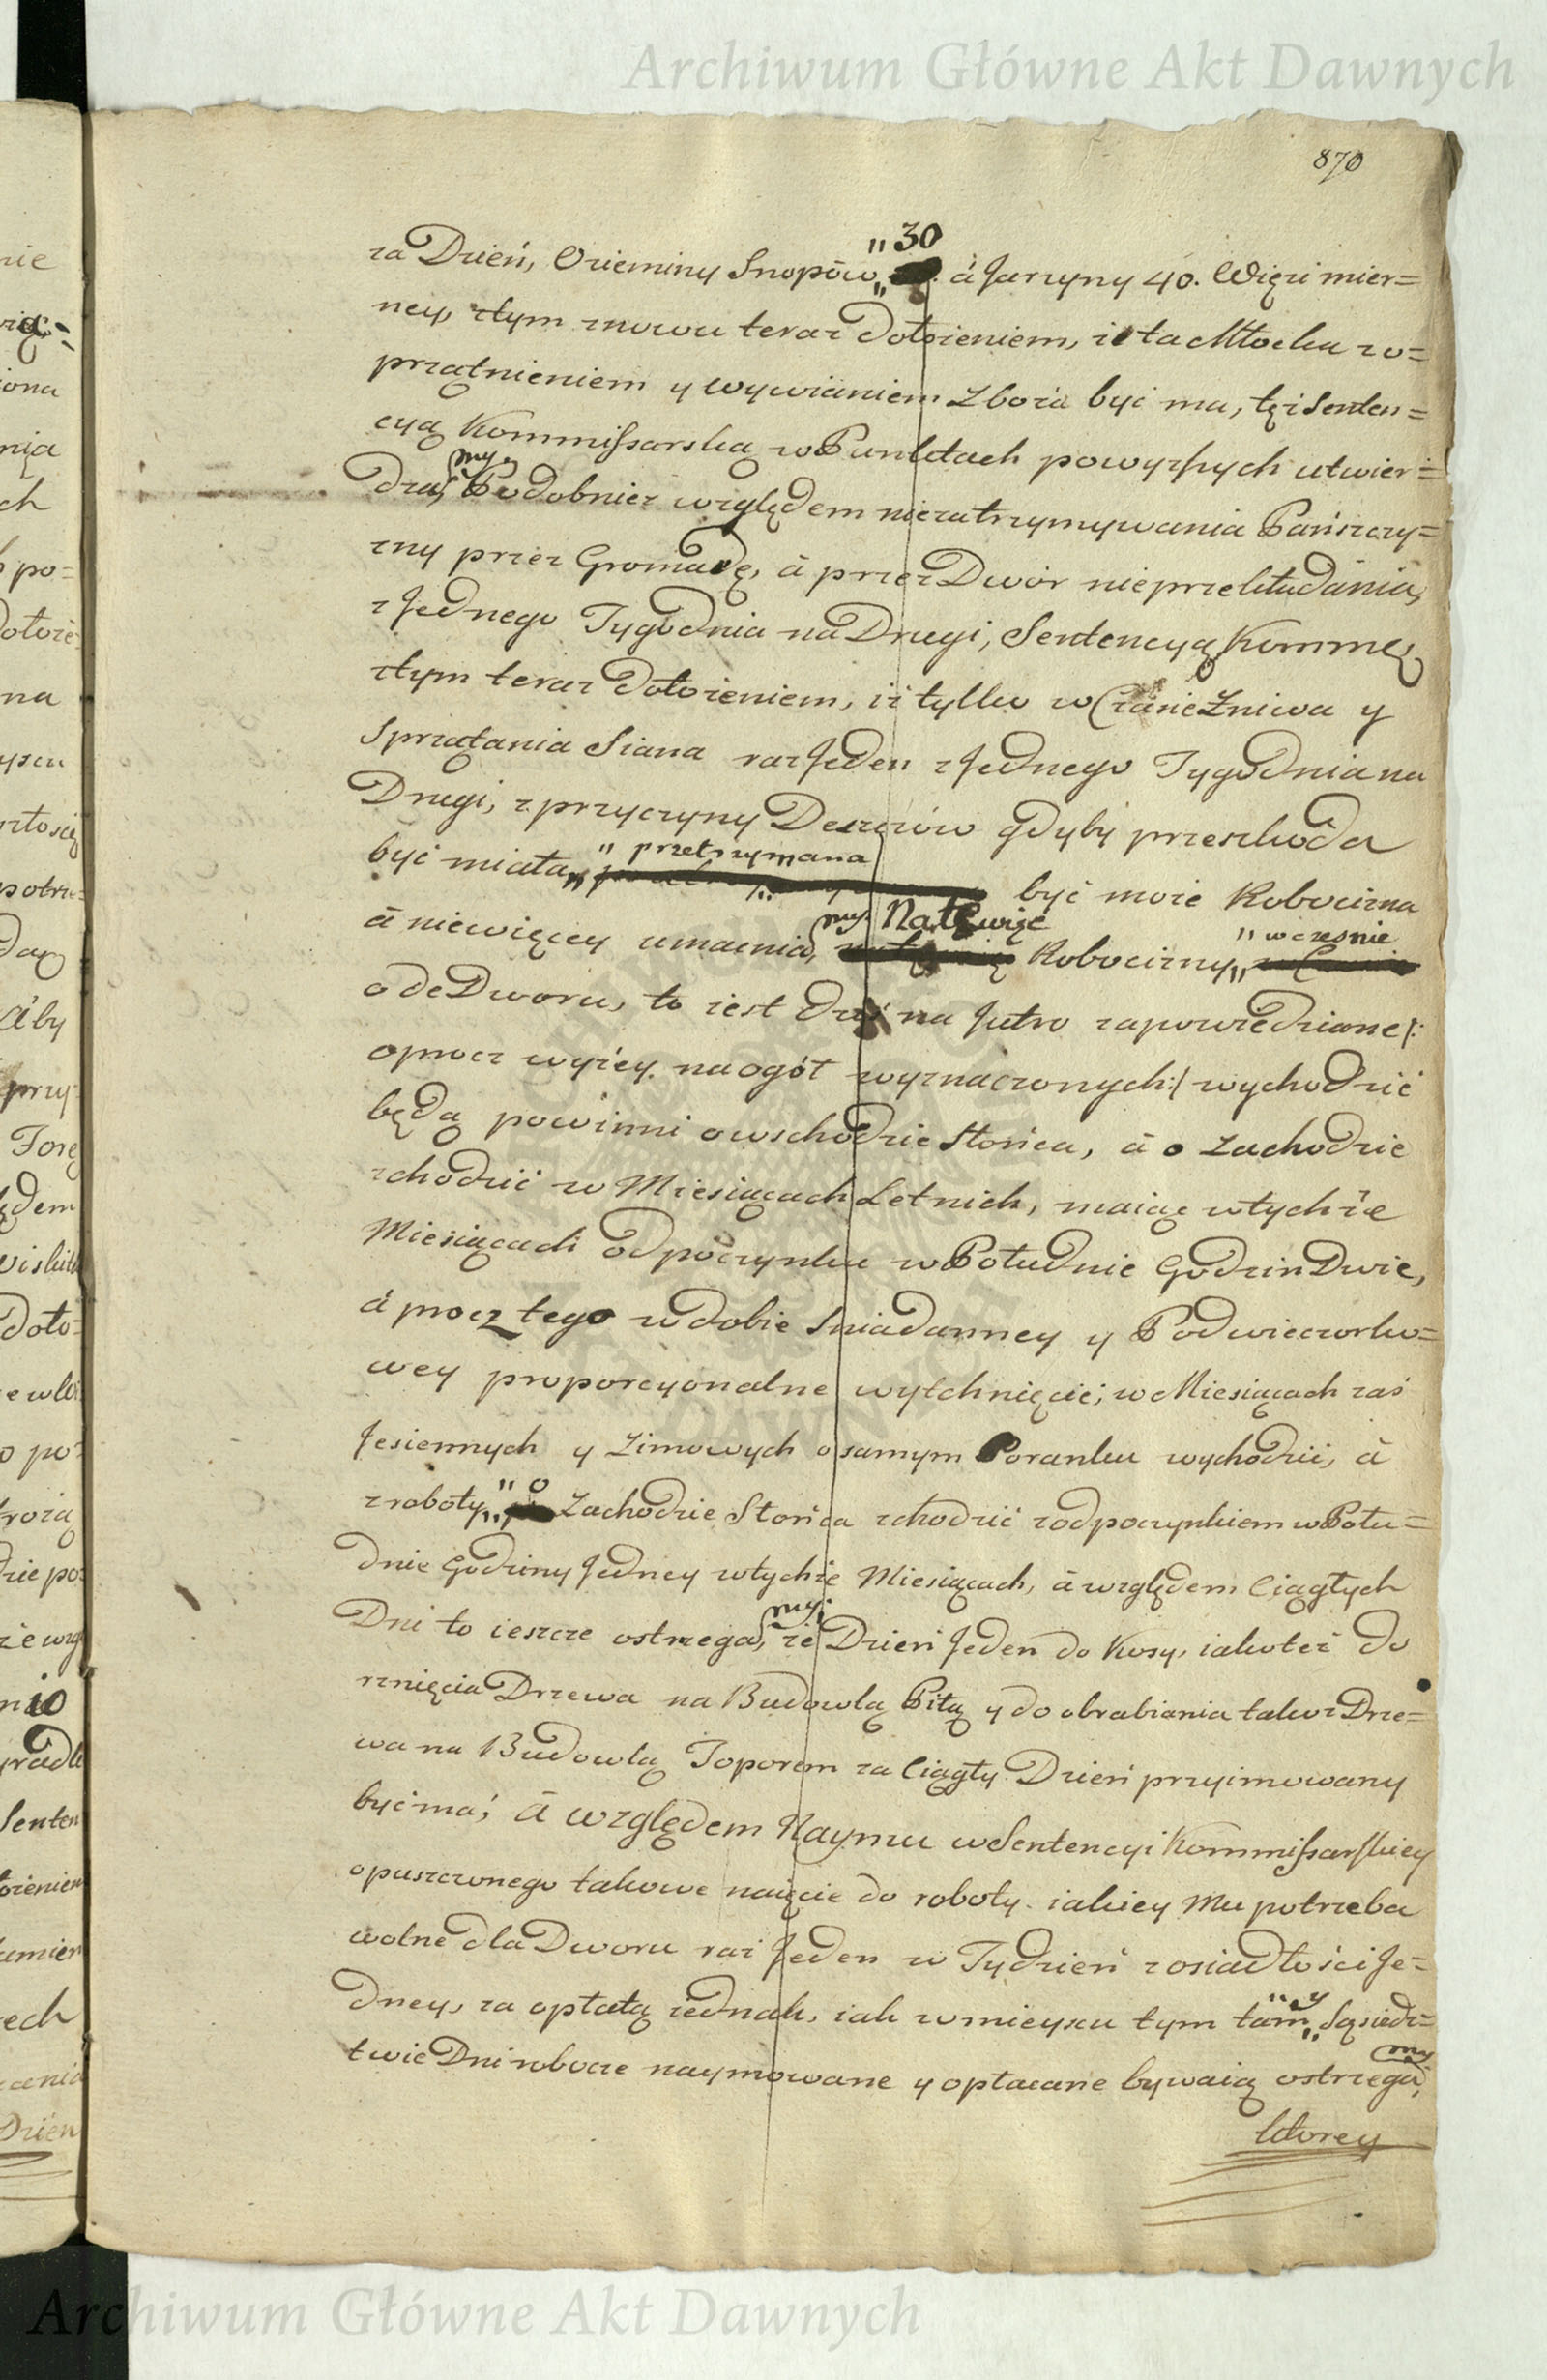 Archiwum Główne Akt Dawnych
870
za Dzień, Ozieminy Snopów 30 à Jarzyny 40. Więzi mier=
ney, ztym znowu teraz dołożeniem, iż ta Młocka zo=
przątnieniem y wywianiem Zboża być ma, tęż Senten=
cyą Kommissarską w Punktach powyższych utwier=
dzamy. Podobnież względem niezatrzymywania Pańszczy=
zny przez Gromadę, à przez Dwór nieprzekładania,
z Jednego Tygodnia na Drugi, Sentencyą Kommę
ztym teraz dołożeniem, iż tylko w Czasie Żniwa y
Sprzątania Siana raz Jeden z Jednego Tygodnia na
Drugi, z przyczyny Deszczów gdyby przeszkoda
być miała, przetrzymana być może Robocizna
à niewięcey umacniamy. Na tęwięc Robocizny, wczesnie
odeDworu, to iest dziś na Jutro zapowiedzianey/:
oprocz wyżey na ogół wyznaczonych:/ wychodzić
będą powinni o wschodzie Słońca, à o Zachodzie
zchodzić w Miesiącach Letnich, maiąc wtychże
Miesiącach odpoczynku w Południe Godzin Dwie,
à procz tego w dobie Sniadanney y Podwieczorko=
wey proporcyonalne wytchnięcie; w Miesiącach zaś
Jesiennych y Zimowych o samym Poranku wychodzić, à
z roboty o Zachodzie Słońca zchodzić zodpoczynkiem w Połu=
dnie Godziny Jedney wtychże Miesiącach, à względem Ciągłych
Dni to ieszcze ostrzegamy, że Dzień Jeden do Kosy, iakoteż do
rznięcia Drzewa na Budowlą Piłą y do obrabiania takoż Drze=
wa na Budowlą Toporem za Ciągły Dzień przyimowany
być ma; à względem Naymu w Sentencyi Kommissarskiey
opuszczonego takowe naięcie do roboty iakiey Mu potrzeba
wolne dla Dworu raz Jeden w Tydzień z osiadłości Je=
dney, za opłatą iednak, iak w mieyscu tym tam y Sąsiedz=
twie Dni robocze naymowane y opłacane bywaią ostrzegamy,
ktorey
Archiwum Główne Akt Dawnych